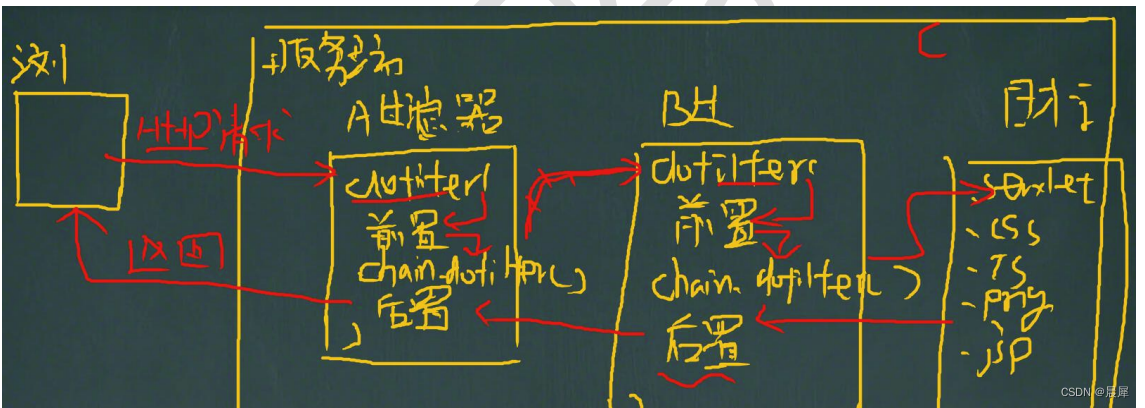 浏
服务端
C
HTTP请求
A过滤器
B过
目标
dofilter(
前置
chain.dofilter()
后置
)
dofilter(
前置
chain.dofilter()
后置
)
servlet
.css
.JS
.png
.jsp
返回
CSDN @晨犀